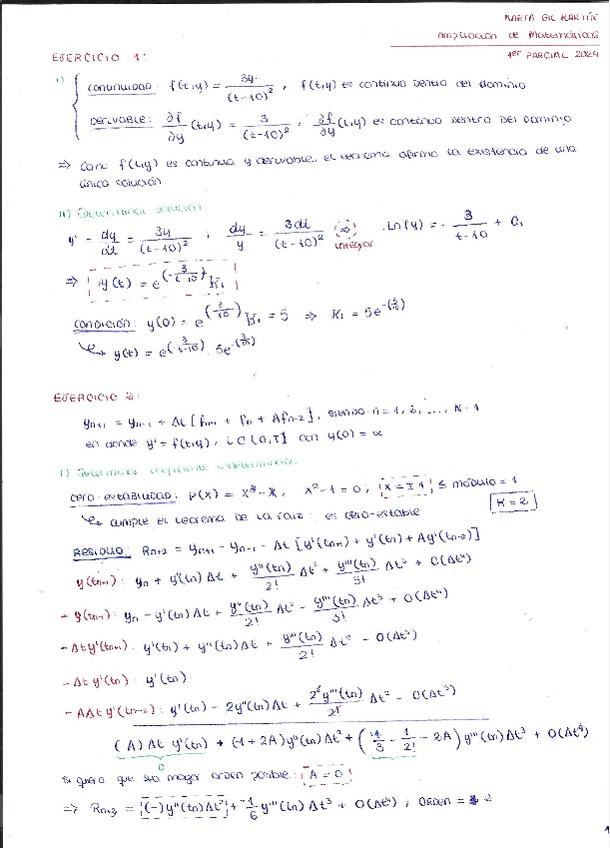 MARTA GIL MARTÍN
Ampliación de Matemáticas
1er PARCIAL 2024
EJERCICIO 1:
i) CONTINUIDAD: f(t,y) = 3y/(t-10)², f(t,y) es continua dentro del dominio
DERIVABLE: ∂f/∂y (t,y) = 3/(t-10)², ∂f/∂y (t,y) es continua dentro del dominio
⇒ Como f(t,y) es continua y derivable, el teorema afirma la existencia de una
única solución.
ii) Determinar solución
y' = dy/dt = 3y/(t-10)² ; dy/y = 3dt/(t-10)² ⇒ integrar Ln(y) = - 3/(t-10) + C₁
⇒ y(t) = e^(-3/(t-10)) K₁
CONDICIÓN: y(0) = e^(3/10) K₁ = 5 ⇒ K₁ = 5e^-(3/10)
↳ y(t) = e^(-3/(t-10)) · 5e^-(3/10)
EJERCICIO 2:
yn+1 = yn-1 + Δt [fn+1 + fn + Afn-2], siendo n = 1, 2, ..., N-1
en donde y' = f(t,y), t C [0,T] con y(0) = α
i) Determinar coeficiente indeterminado
CERO-ESTABILIDAD: P(x) = x³ - x, x² - 1 = 0; x = ±1 ≤ módulo = 1
↳ cumple el teorema de la raíz: es cero-estable K = 2
RESIDUO: Rn+2 = yn+1 - yn-1 - Δt [y'(tn+1) + y'(tn) + Ay'(tn-2)]
y(tn+1): yn + y'(tn) Δt + y''(tn)/2! Δt² + y'''(tn)/3! Δt³ + O(Δt⁴)
- y(tn-1): yn - y'(tn) Δt + y''(tn)/2! Δt² - y'''(tn)/3! Δt³ + O(Δt⁴)
- Δt y'(tn+1): y'(tn) + y''(tn) Δt + y'''(tn)/2! Δt² - O(Δt³)
- Δt y'(tn): y'(tn)
- AΔt y'(tn-2): y'(tn) - 2y''(tn) Δt + 2² y'''(tn)/2! Δt² - O(Δt³)
(A) Δt y'(tn) + (-1 + 2A) y''(tn) Δt² + (1/3 - 1/2! - 2A) y'''(tn) Δt³ + O(Δt⁴)
0
Si quiero que sea mayor orden posible: A = 0
⇒ Rn+2 = (-) y''(tn) Δt² + -1/6 y'''(tn) Δt³ + O(Δt⁴) ; Orden = 2
1